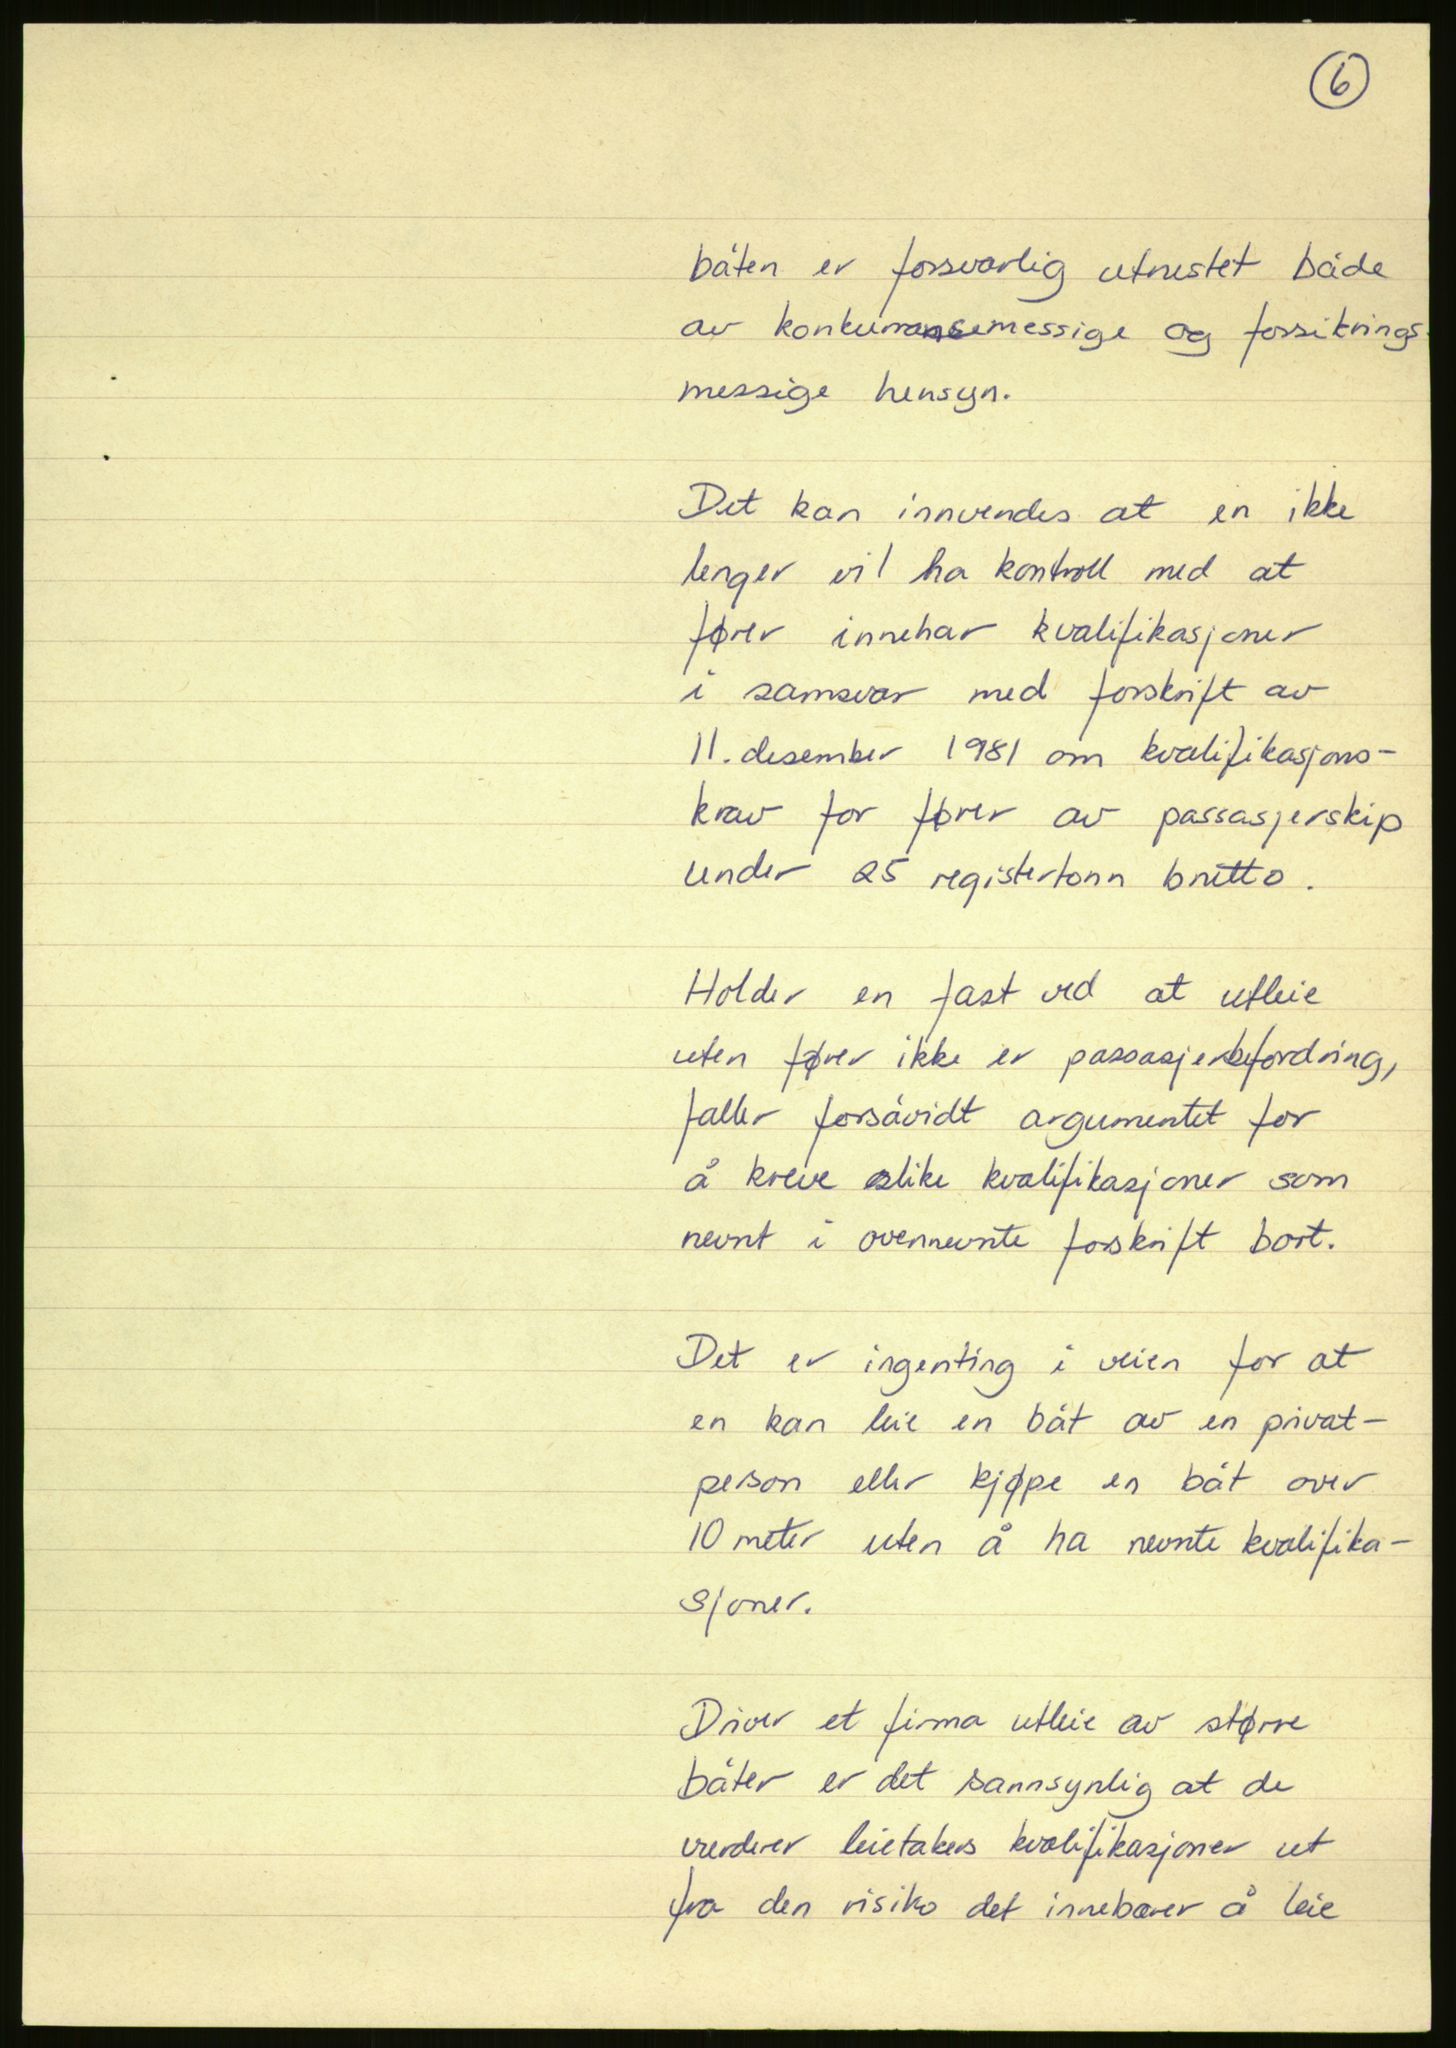 6
båten er forsvarlig utrustet både
av konkurransemessige og forsikrings-
messige hensyn.
Det kan innvendes at en ikke
lenger vil ha kontroll med at
fører innehar kvalifikasjoner
i samsvar med forskrift av
11. desember 1981 om kvalifikasjons-
krav for fører av passasjerskip
under 25 registertonn brutto.
Holder en fast ved at utleie
uten fører ikke er passasjerbefordring,
faller forsåvidt argumentet for
å kreve slike kvalifikasjoner som
nevnt i ovennevnte forskrift bort.
Det er ingenting i veien for at
en kan leie en båt av en privat-
person eller kjøpe en båt over
10 meter uten å ha nevnte kvalifika-
sjoner.
Driver et firma utleie av større
båter er det sannsynlig at de
vurderer leietakers kvalifikasjoner ut
fra den risiko det innebærer å leie